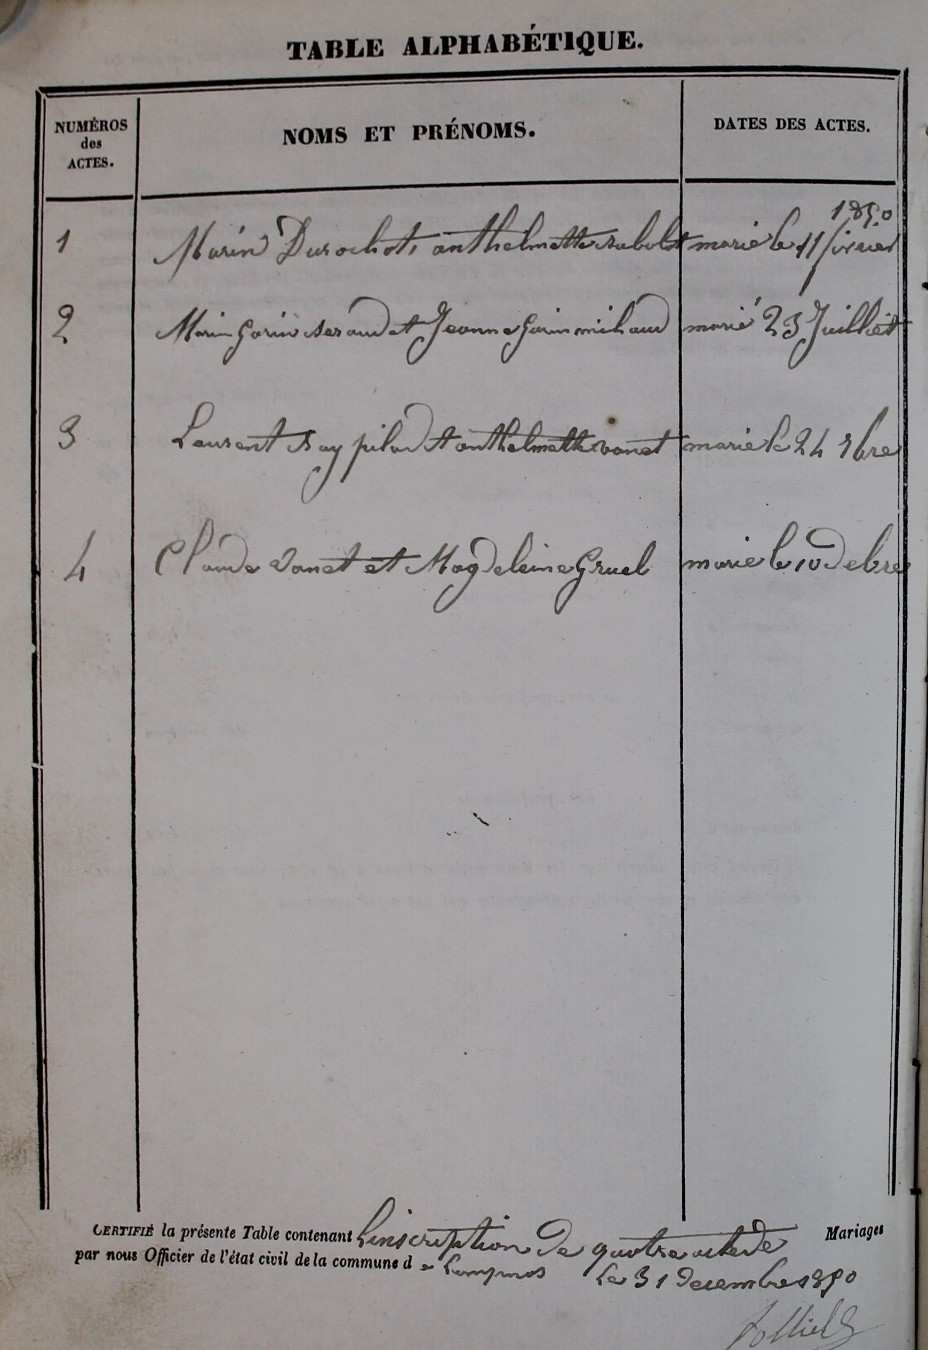 TABLE ALPHABÉTIQUE.
NUMÉROS des ACTES.
NOMS ET PRÉNOMS.
DATES DES ACTES.
1850
1 Marin Durochat, anthelmette rabolt marié le 11 février
2 Marin Garin et Jeanne Garin michaud marié 23 Juillet
3 Laurent ray pilod et anthelmette vanet marié le 24 9bre
4 Claude Vanet et Magdeleine Gruel marié le 10 debre
CERTIFIÉ la présente Table contenant L'inscription de quatre acte de Mariages
par nous Officier de l'état civil de la commune de Lompnas le 31 decembre 1850